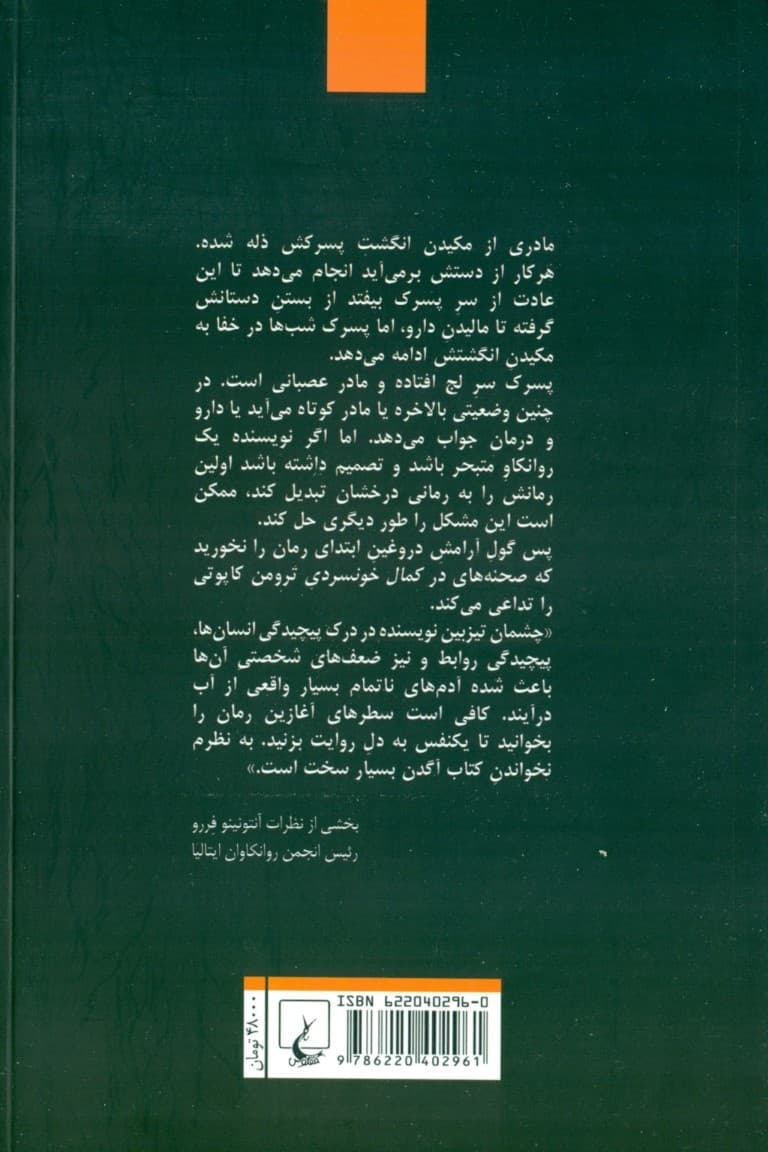 مادری از مکیدن انگشتِ پسرکش ذله شده.
هَرکار از دستش برمی‌آید انجام می‌دهد تا این
عادت از سرِ پسرک بیفتد از بستنِ دستانش
گرفته تا مالیدنِ دارو، اما پسرک شب‌ها در خفا به
مکیدنِ انگشتش ادامه می‌دهد.
پسرک سرِ لج افتاده و مادر عصبانی است. در
چنین وضعیتی بالاخره یا مادر کوتاه می‌آید یا دارو
و درمان جواب می‌دهد. اما اگر نویسنده یک
روانکاوِ متبحر باشد و تصمیم داشته باشد اولین
رمانش را به رمانی درخشان تبدیل کند، ممکن
است این مشکل را طور دیگری حل کند.
پس گولِ آرامشِ دروغینِ ابتدای رمان را نخورید
که صحنه‌های در کمال خونسردیِ ترومن کاپوتی
را تداعی می‌کند.
«چشمان تیزبین نویسنده در درک پیچیدگی انسان‌ها،
پیچیدگی روابط و نیز ضعف‌های شخصتیِ آن‌ها
باعث شده آدم‌های ناتمام بسیار واقعی از آب
درآیند. کافی است سطرهای آغازین رمان را
بخوانید تا یکنفس به دلِ روایت بزنید. به نظرم
نخواندنِ کتاب آگدن بسیار سخت است.»
بخشی از نظرات آنتونینو فِررو
رئیس انجمن روانکاوان ایتالیا
ISBN 622040296-0
9 786220 402961
۴۸۰۰۰ تومان
ققنوس